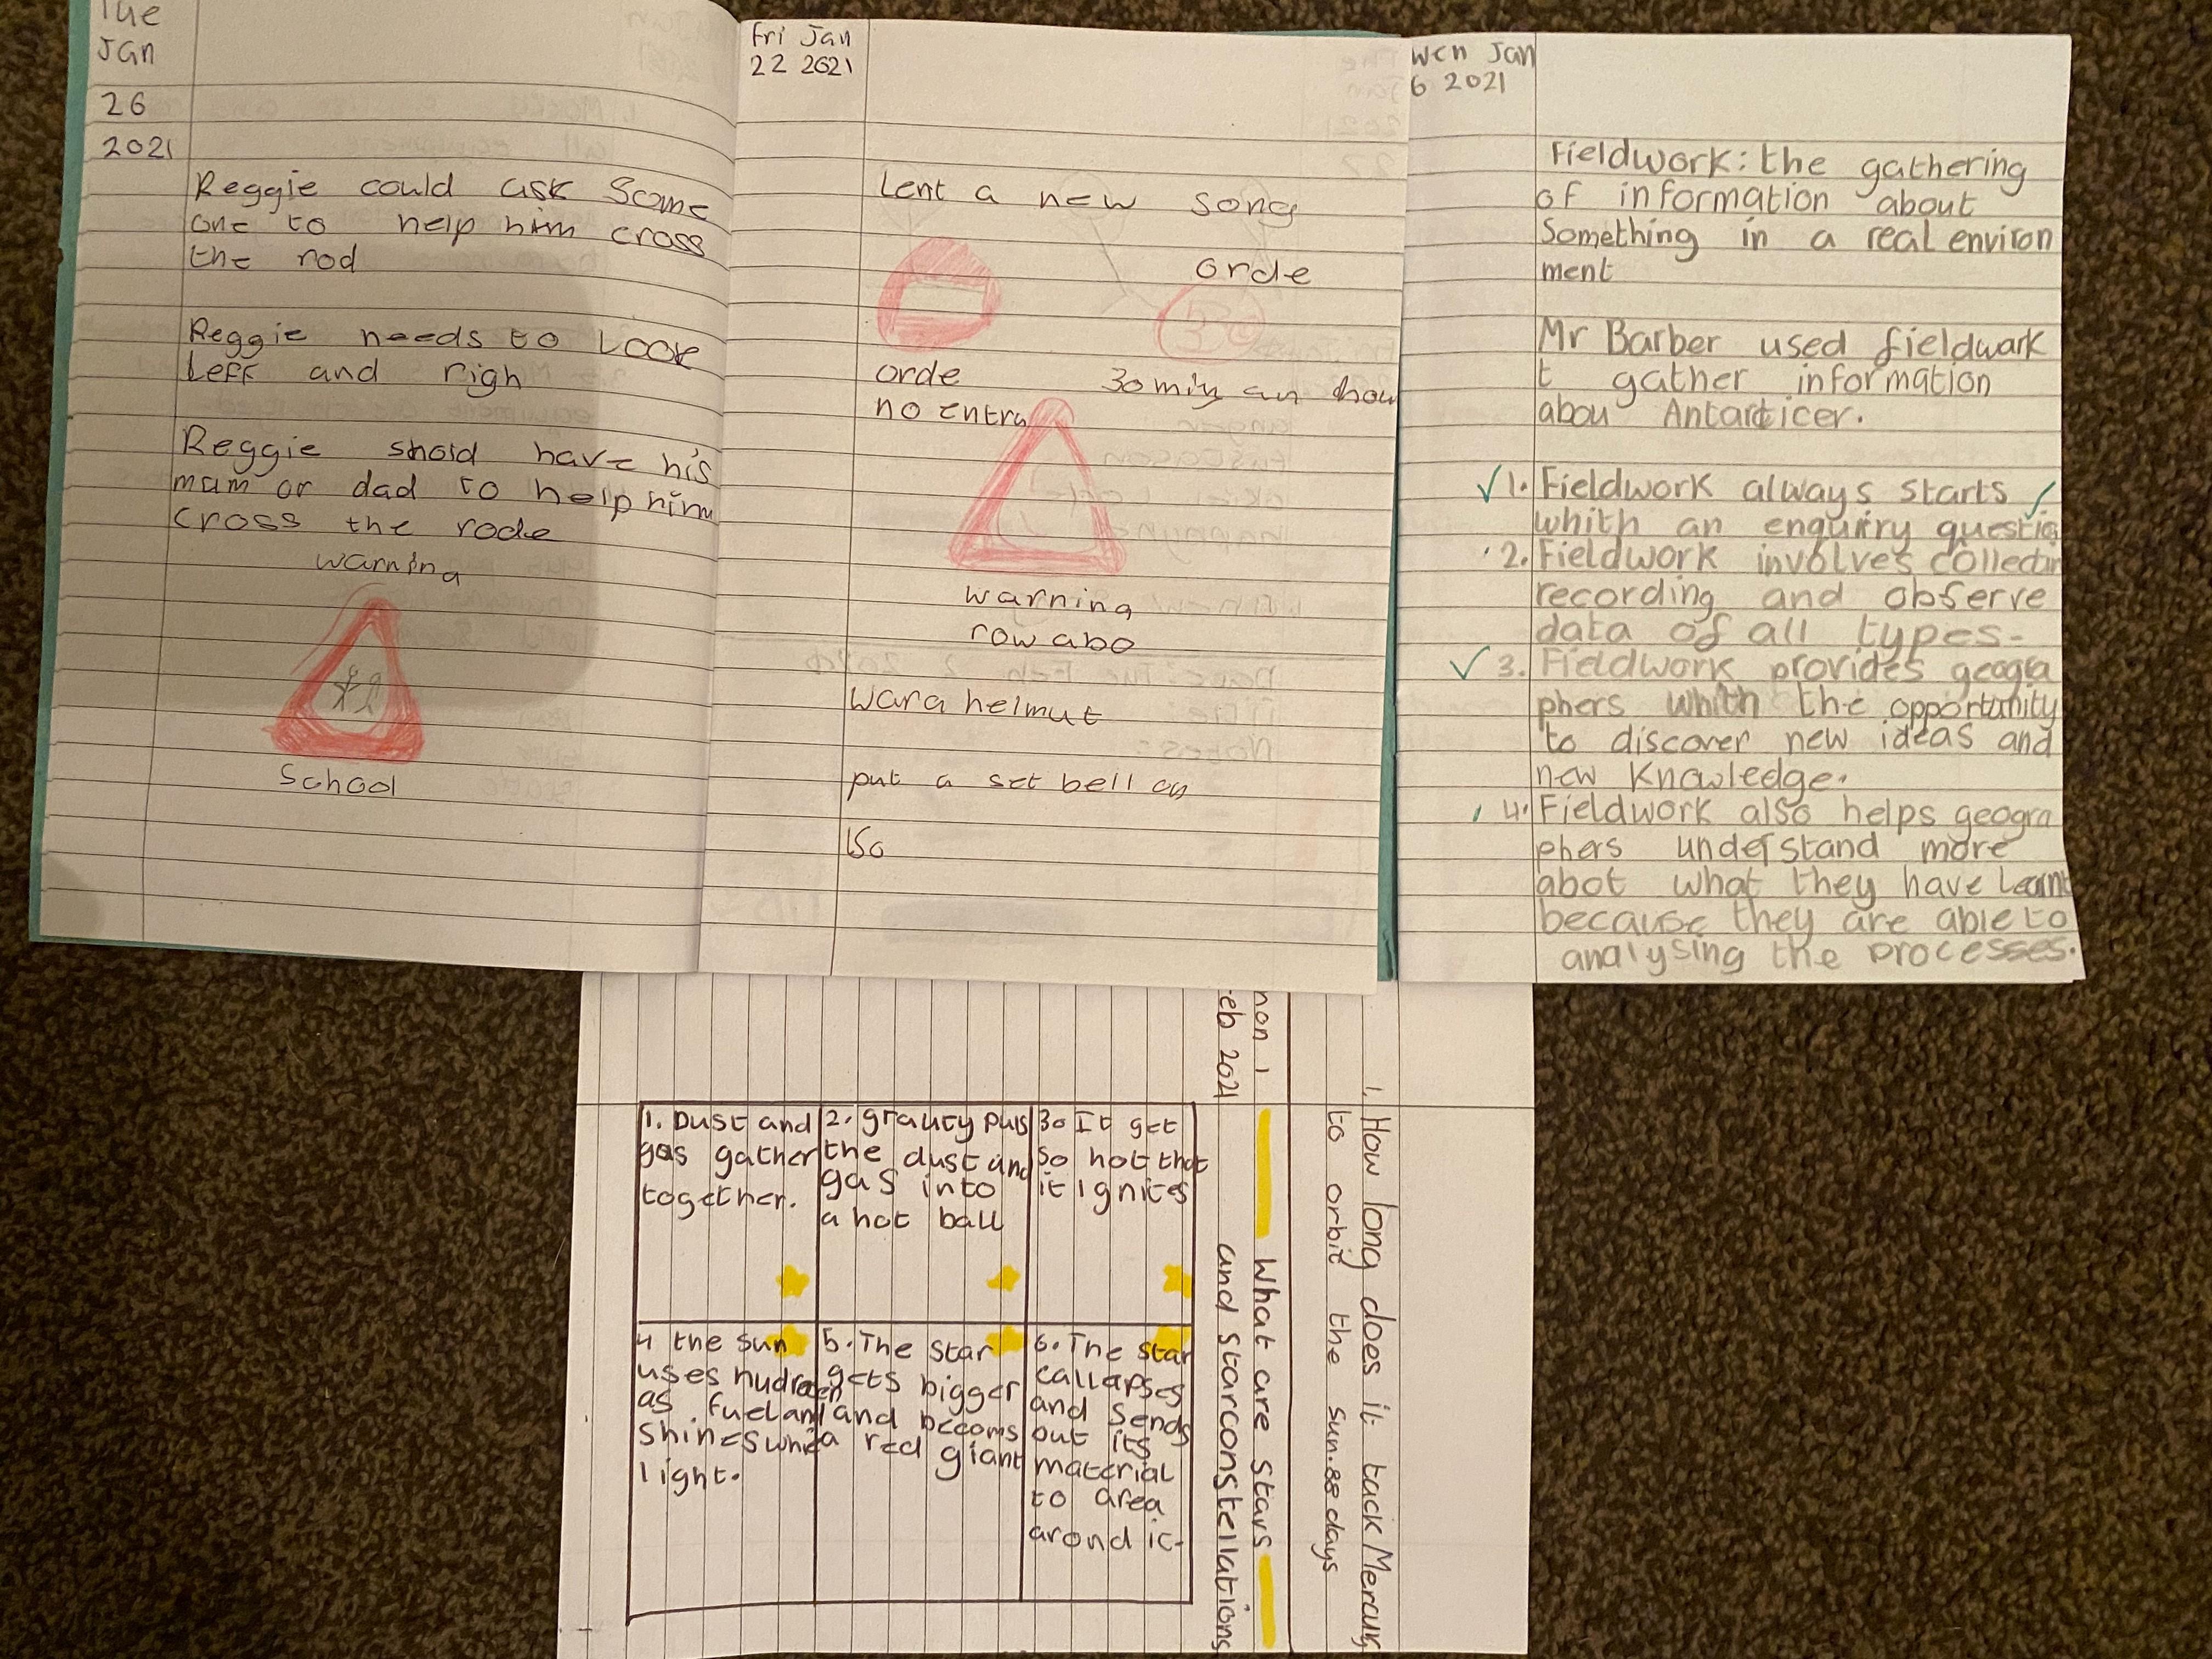 Tue
Jan
26
2021
Reggie could ask Some
one to help him cross
the rod
Reggie needs to Look
Leff and righ
Reggie shold have his
mum or dad to help him
cross the rode
warning
School
Fri Jan
22 2021
Lent a new song
orde
30
orde
30 miy an hou
no entry
warning
row abo
wara helmut
put a set bell on
Wen Jan
6 2021
Fieldwork: the gathering
of information about
Something in a real environ
ment
Mr Barber used fieldwark
t gather information
abou Antarticer.
1. Fieldwork always starts
whith an enquiry questio
2. Fieldwork involves collectin
recording and observe
data of all types.
3. Fieldwork provides geogra
phers whith the opportunity
to discover new ideas and
new Knowledge.
4. Fieldwork also helps geogra
phers understand more
abot what they have Learnt
because they are able to
analysing the processes.
1. How long does it tack Mercury
to orbit the sun. 88 days
mon 1
eb 2021
What are stars
and starconstellations
1. Dust and
gas gather
together.
2. gravity puls
the dust and
gas into
a hot ball
3. It get
so hot that
it ignites
4 the sun
uses hudrogen
as fuel and
shines
light.
5. The Star
gets bigger
and becoms
a red giant
6. The star
callapses
and sends
out its
material
to area
arond it.